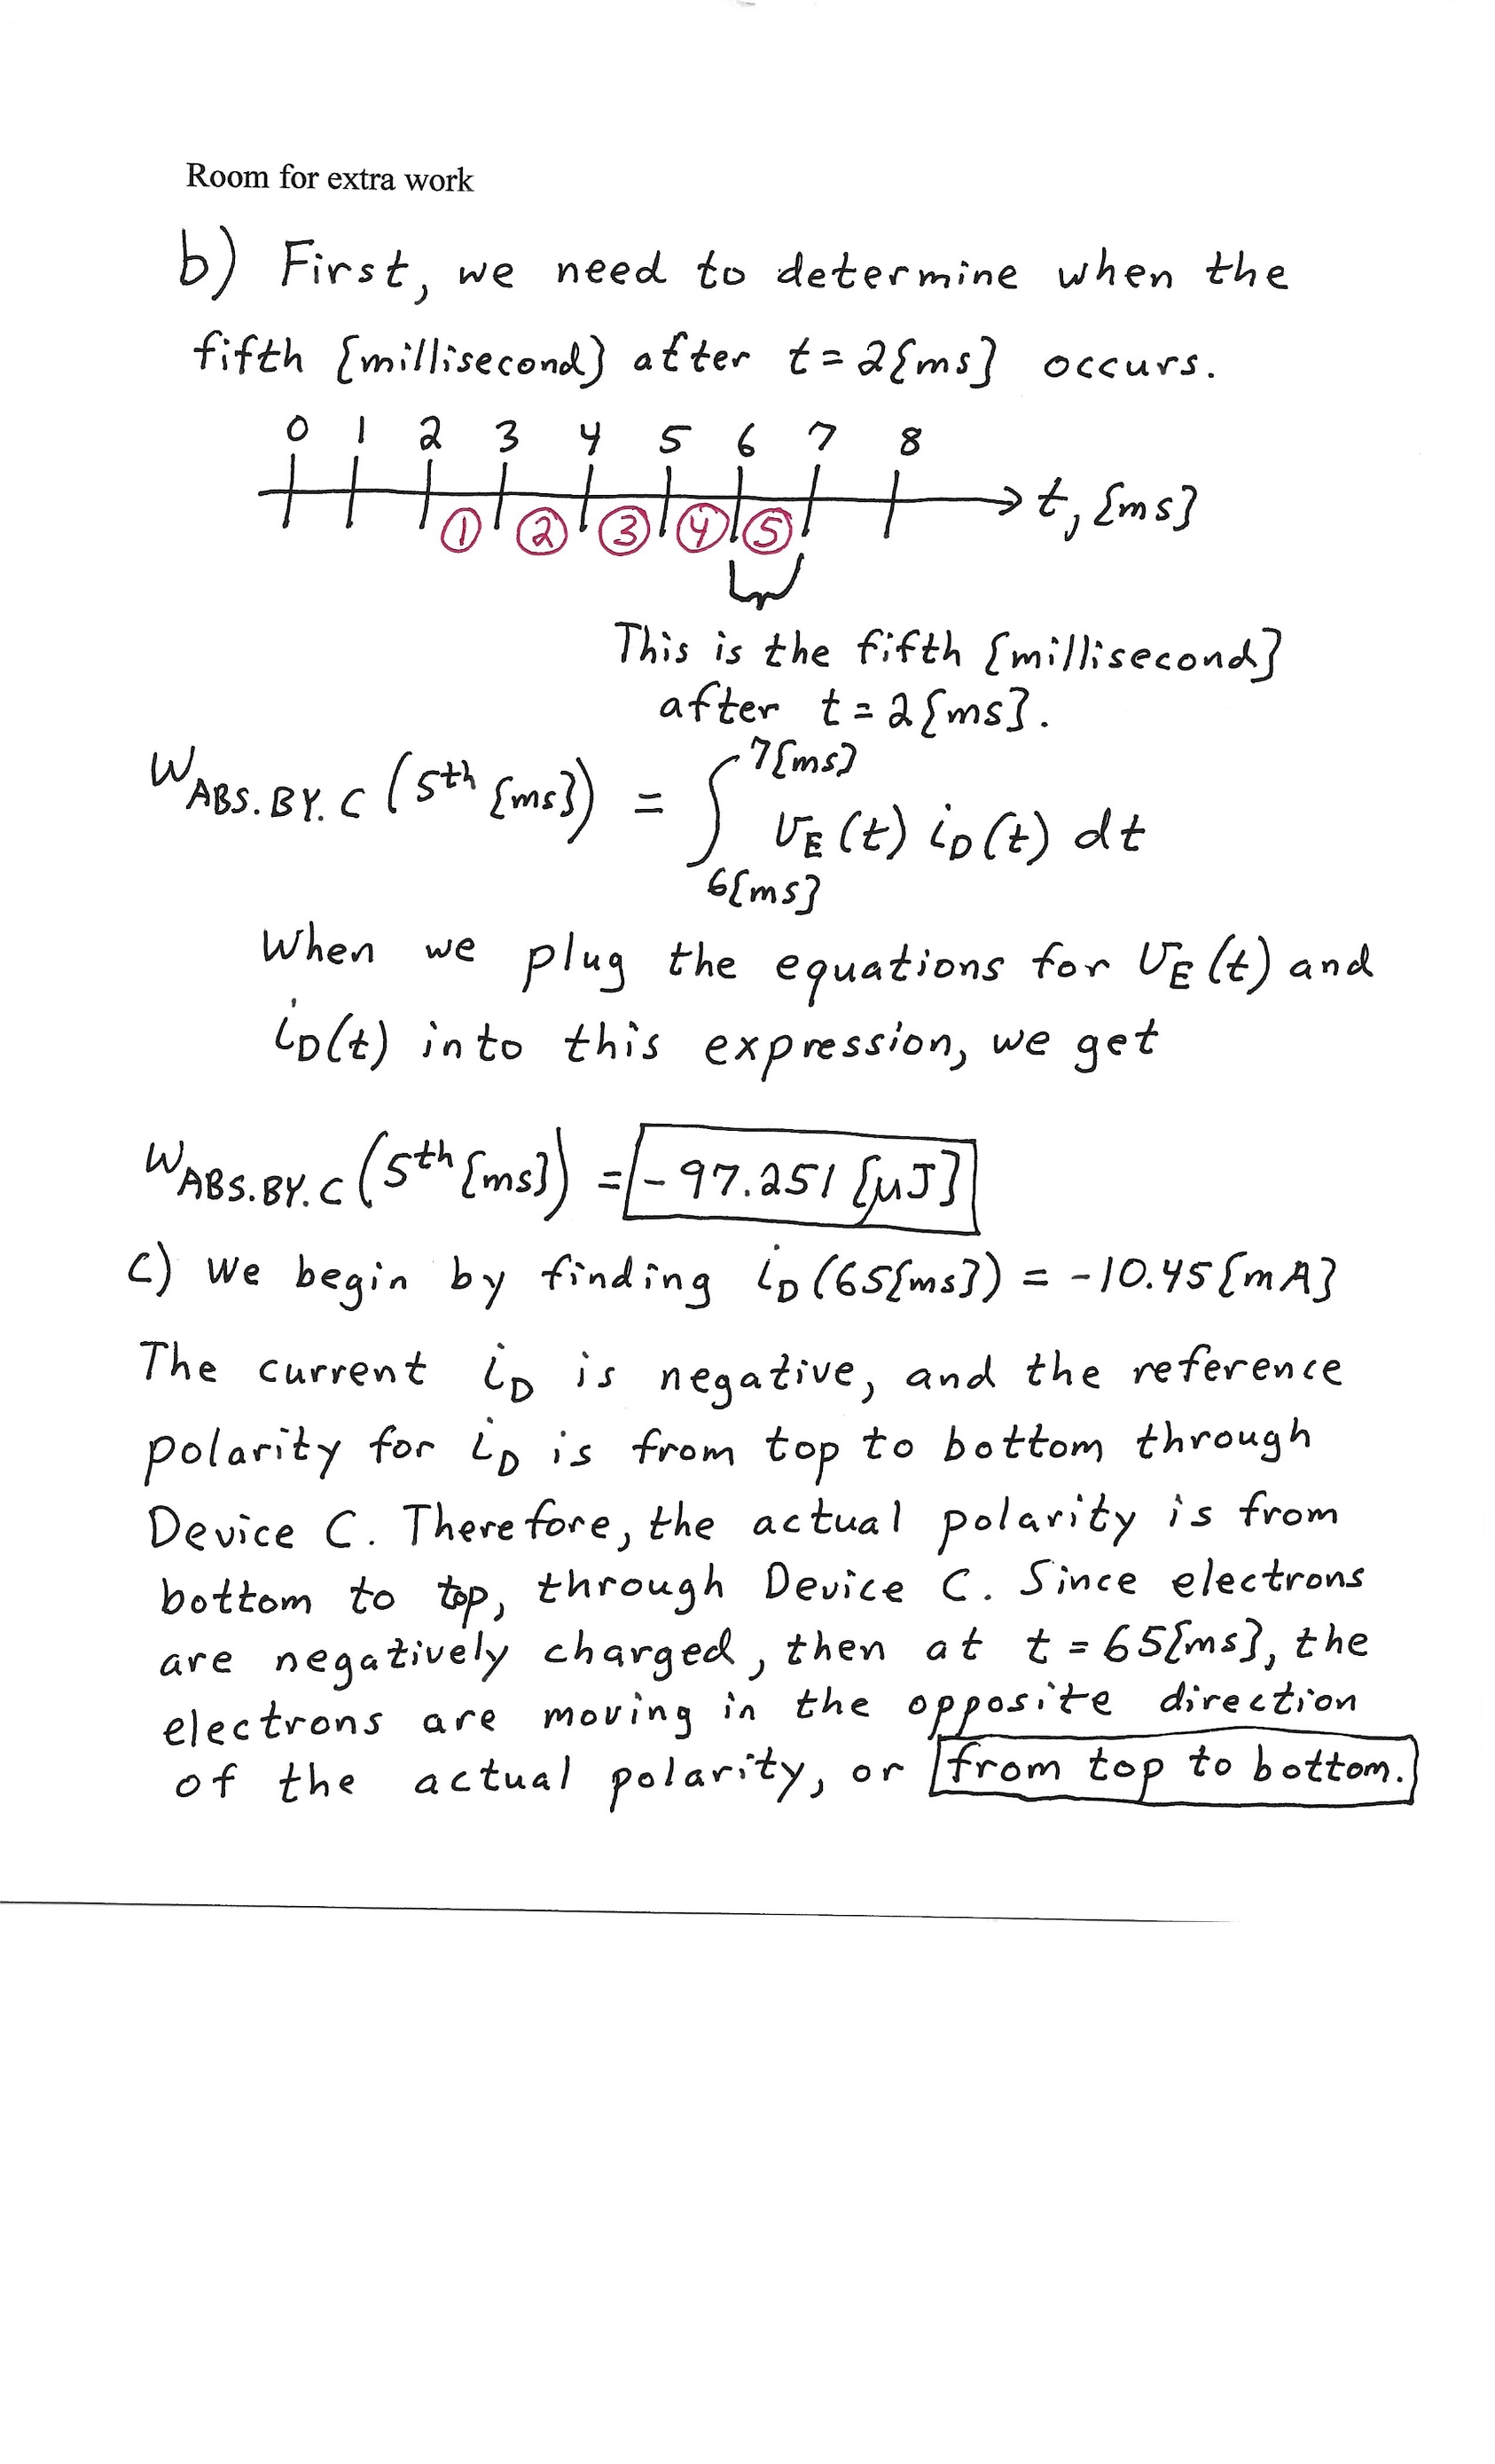 Room for extra work
b) First, we need to determine when the
fifth [millisecond] after t=2[ms] occurs.
0 1 2 3 4 5 6 7 8
t, [ms]
① ② ③ ④ ⑤
This is the fifth [millisecond]
after t=2[ms].
W_ABS.BY.C (5th [ms]) = ∫_{6[ms]}^{7[ms]} v_E(t) i_D(t) dt
When we plug the equations for v_E(t) and
i_D(t) into this expression, we get
W_ABS.BY.C (5th [ms]) = -97.251 [μJ]
c) We begin by finding i_D(65[ms]) = -10.45[mA]
The current i_D is negative, and the reference
polarity for i_D is from top to bottom through
Device C. Therefore, the actual polarity is from
bottom to top, through Device C. Since electrons
are negatively charged, then at t=65[ms], the
electrons are moving in the opposite direction
of the actual polarity, or from top to bottom.